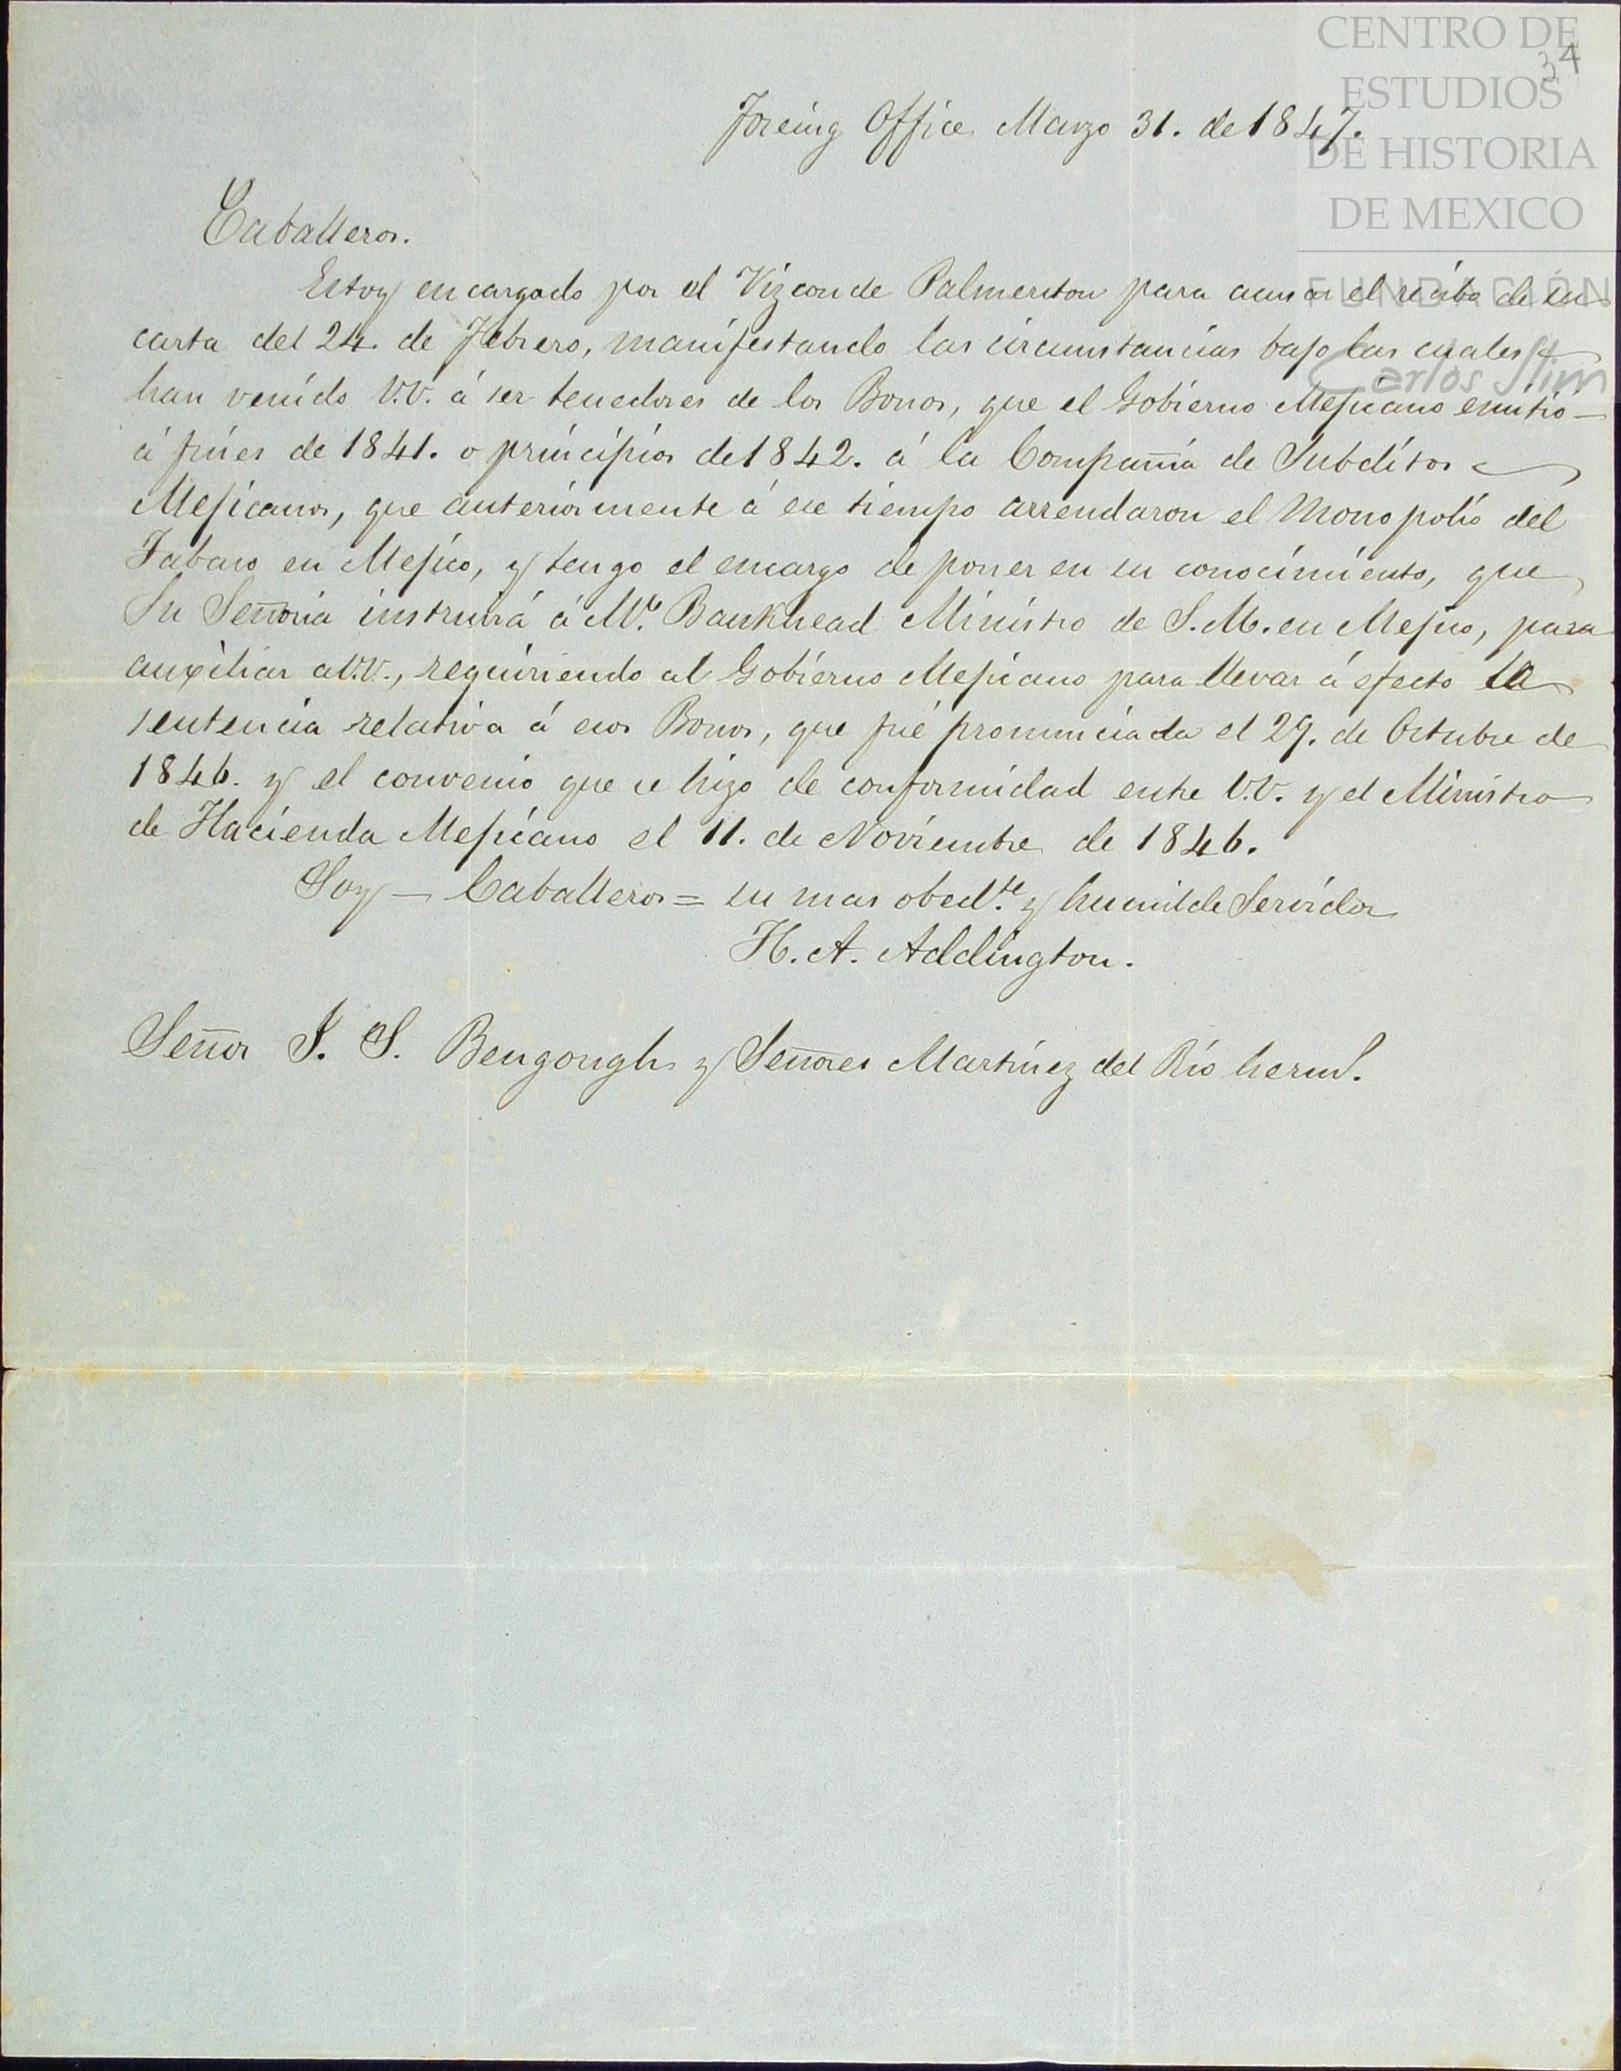 CENTRO DE
ESTUDIOS
DE HISTORIA
DE MEXICO
FUNDACIÓN
Carlos Slim
34
Foreing Office Marzo 31. de 1847.
Caballeros.
Estoy encargado por el Vizconde Palmerston para acusar el recibo de su
carta del 24. de Febrero, manifestando las circunstancias bajo las cuales
han venido V.V. á ser tenedores de los Bonos, que el Gobierno Mejicano emitio
á fines de 1841. o principios de 1842. á la Compañia de Subditos
Mejicanos, que anteriormente á ese tiempo arrendaron el Monopolio del
Tabaco en Mejico, y tengo el encargo de poner en su conocimiento, que
Su Señoria instruirá á Mr. Bankhead Ministro de S.M. en Mejico, para
auxiliar a V.V., requiriendo al Gobierno Mejicano para llevar á efecto la
sentencia relativa á esos Bonos, que fué pronunciada el 29. de Octubre de
1846. y el convenio que se hizo de conformidad entre V.V. y el Ministro
de Hacienda Mejicano el 11. de Noviembre de 1846.
Soy — Caballeros = su mas obedte. y humilde Servidor
H. A. Addington.
Señor J. S. Bengough y Señores Martinez del Rio herms.